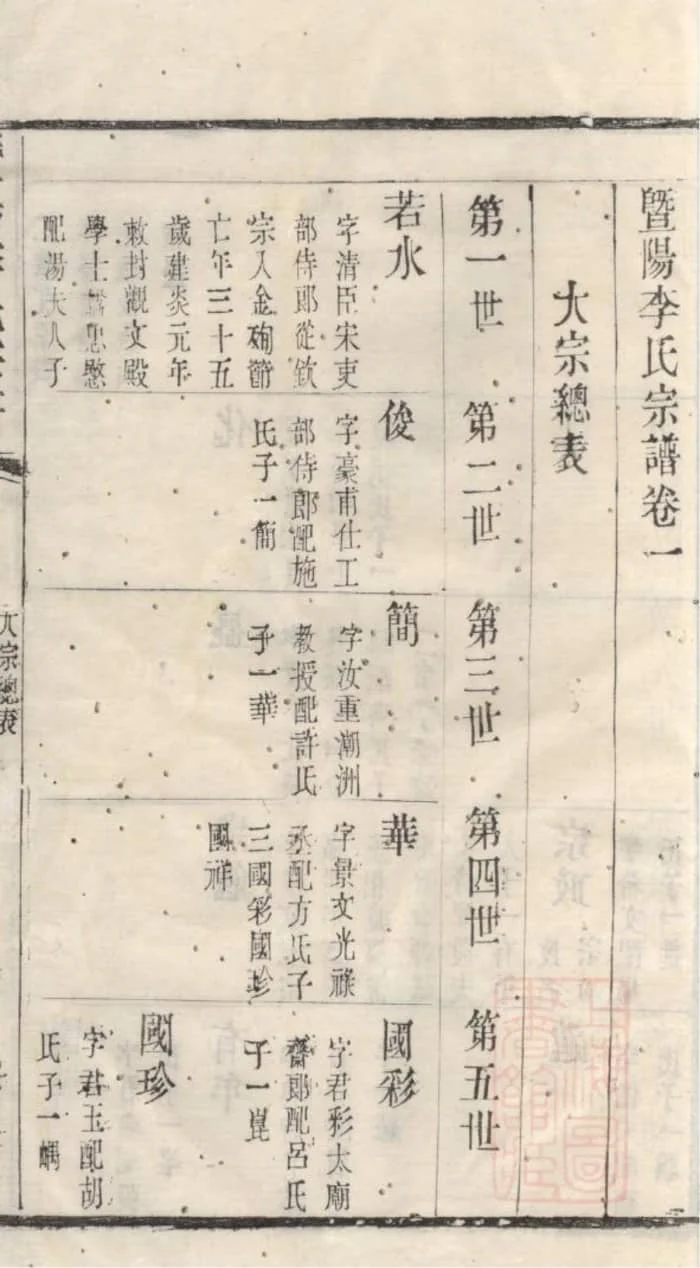 暨陽李氏宗譜卷一
大宗總表
第一世
第二世
第三世
第四世
第五世
若水
字清臣宋吏
部侍郎從欽
宗入金殉節
亡年三十五
歲建炎元年
敕封觀文殿
學士諡忠愍
配湯夫人子
俊
字豪甫仕工
部侍郎配施
氏子一簡
簡
字汝重潮洲
教授配許氏
子一華
華
字景文光祿
丞配方氏子
三國彩國珍
國祥
國彩
字君彩太廟
齋郎配呂氏
子一崑
國珍
字君玉配胡
氏子一嵎
大宗總表